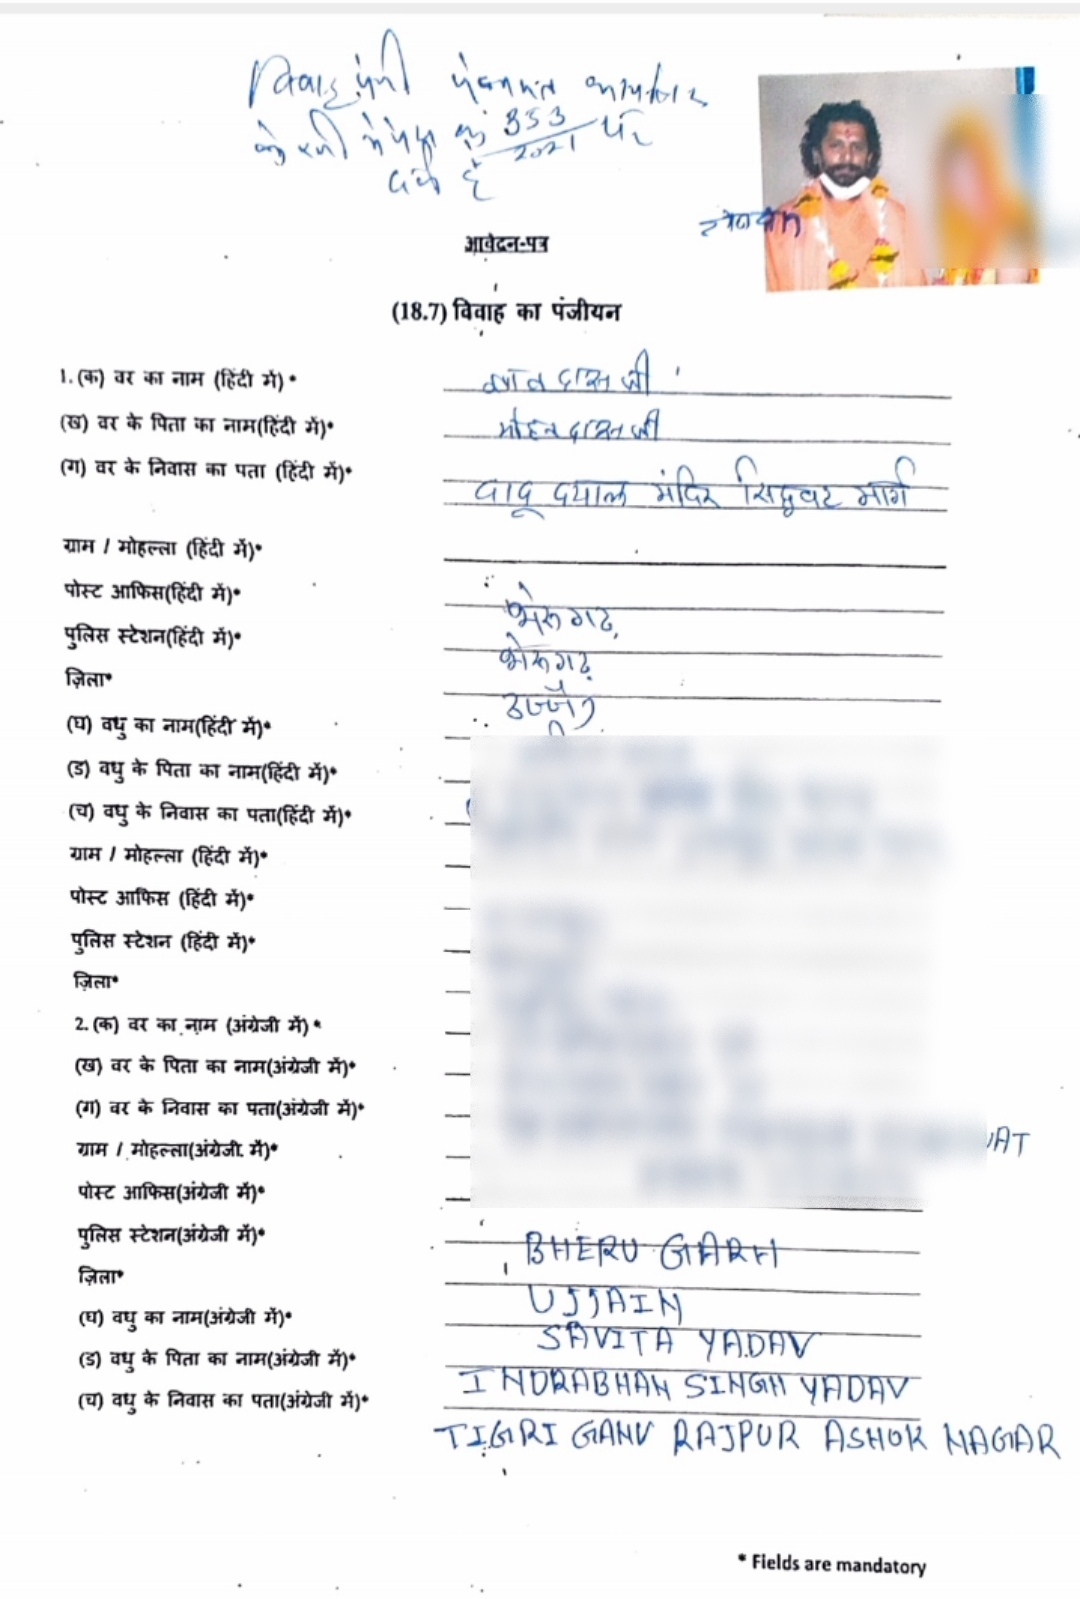 विवाह पंजी पंजीयन कार्यालय
के रजी में पेज क्रं 353/2021 पर
दर्ज है
आवेदन-पत्र
(18.7) विवाह का पंजीयन
1. (क) वर का नाम (हिंदी में)* दास जी
(ख) वर के पिता का नाम(हिंदी में)* मोहन दास जी
(ग) वर के निवास का पता (हिंदी में)* दादू दयाल मंदिर सिद्धवट मार्ग
ग्राम / मोहल्ला (हिंदी में)*
पोस्ट आफिस(हिंदी में)* भेरूगढ़
पुलिस स्टेशन(हिंदी में)* भेरूगढ़
ज़िला* उज्जैन
(घ) वधु का नाम(हिंदी में)*
(ड) वधु के पिता का नाम(हिंदी में)*
(च) वधु के निवास का पता(हिंदी में)*
ग्राम / मोहल्ला (हिंदी में)*
पोस्ट आफिस (हिंदी में)*
पुलिस स्टेशन (हिंदी में)*
ज़िला*
2. (क) वर का नाम (अंग्रेजी में) *
(ख) वर के पिता का नाम(अंग्रेजी में)*
(ग) वर के निवास का पता(अंग्रेजी में)*
ग्राम / मोहल्ला(अंग्रेजी में)*
पोस्ट आफिस(अंग्रेजी में)*
पुलिस स्टेशन(अंग्रेजी में)* BHERU GARH
ज़िला* UJJAIN
(घ) वधु का नाम(अंग्रेजी में)* SAVITA YADAV
(ड) वधु के पिता का नाम(अंग्रेजी में)* INDRABHAN SINGH YADAV
(च) वधु के निवास का पता(अंग्रेजी में)* TIGRI GANV RAJPUR ASHOK NAGAR
* Fields are mandatory